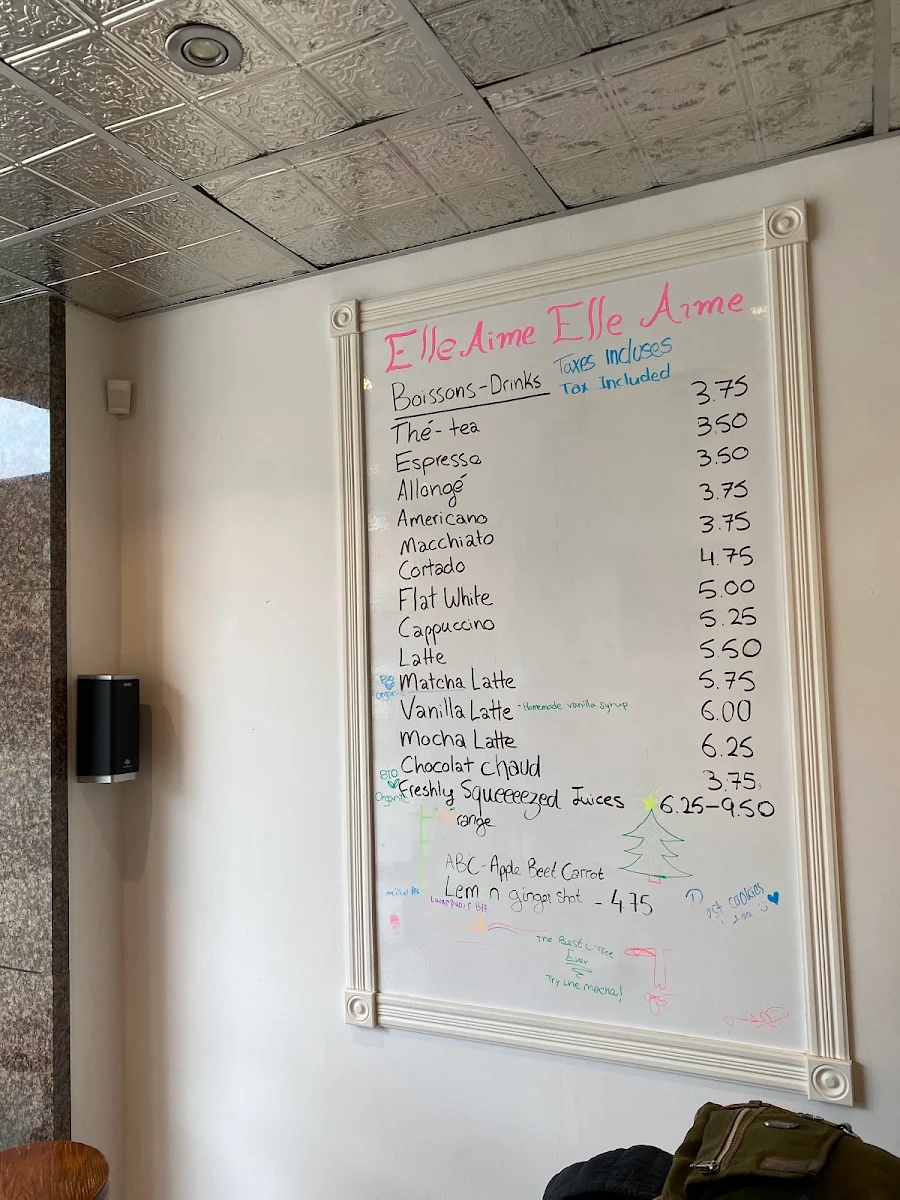 Elle Aime Elle Aime
Boissons-Drinks
Taxes incluses
Tax Included
Thé-tea 3.75
Espresso 3.50
Allongé 3.50
Americano 3.75
Macchiato 3.75
Cortado 4.75
Flat White 5.00
Cappuccino 5.25
Latte 5.50
Bio Organic Matcha Latte 5.75
Vanilla Latte - Homemade vanilla syrup 6.00
Mocha Latte 6.25
Chocolat chaud 3.75
BIO Organic Freshly Squeeeezed Juices 6.25-9.50
Orange
ABC-Apple Beet Carrot
Lem n ginger shot - 4.75
cookies
The Best Coffee
Ever
Try the mocha!